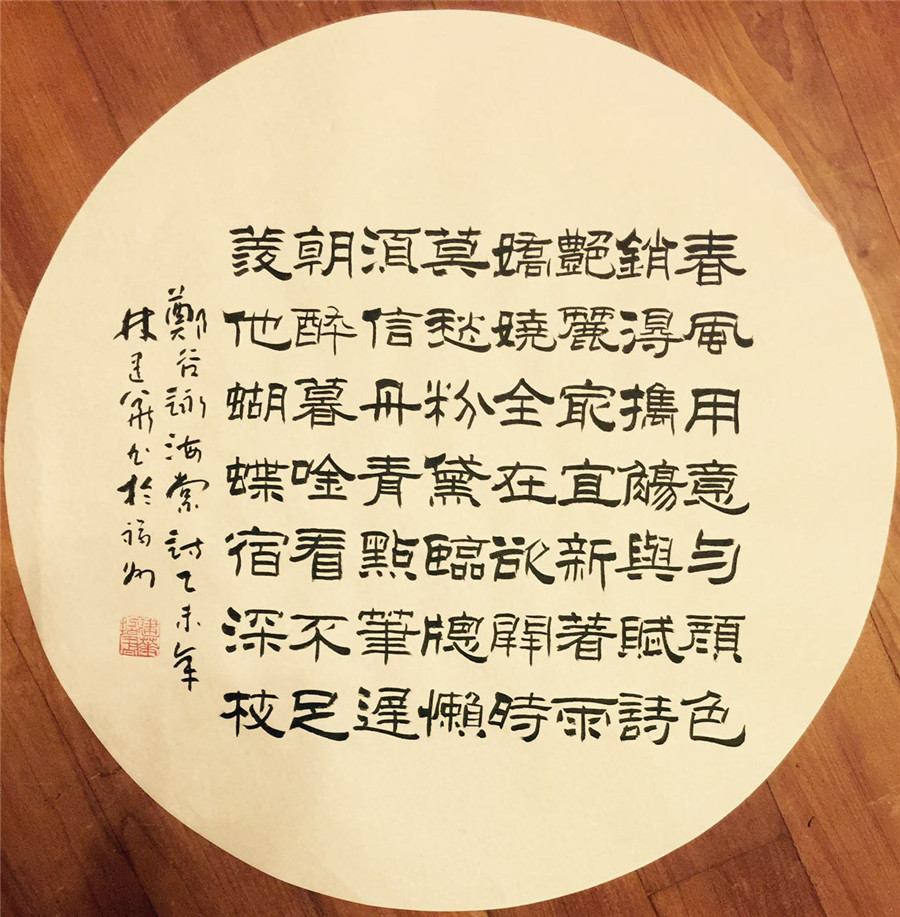 春風用意勻顏色
銷得攜觴與賦詩
艷麗冣宜新著雨
嬌嬈全在欲開時
莫愁粉黛臨牕懶
湏信丹青點筆遲
朝醉暮吟看不足
羨他蝴蝶宿深枝
鄭谷詠海棠詩乙未年
林建華書於福州